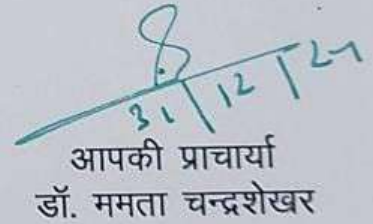 31/12/24
आपकी प्राचार्या
डॉ. ममता चन्द्रशेखर